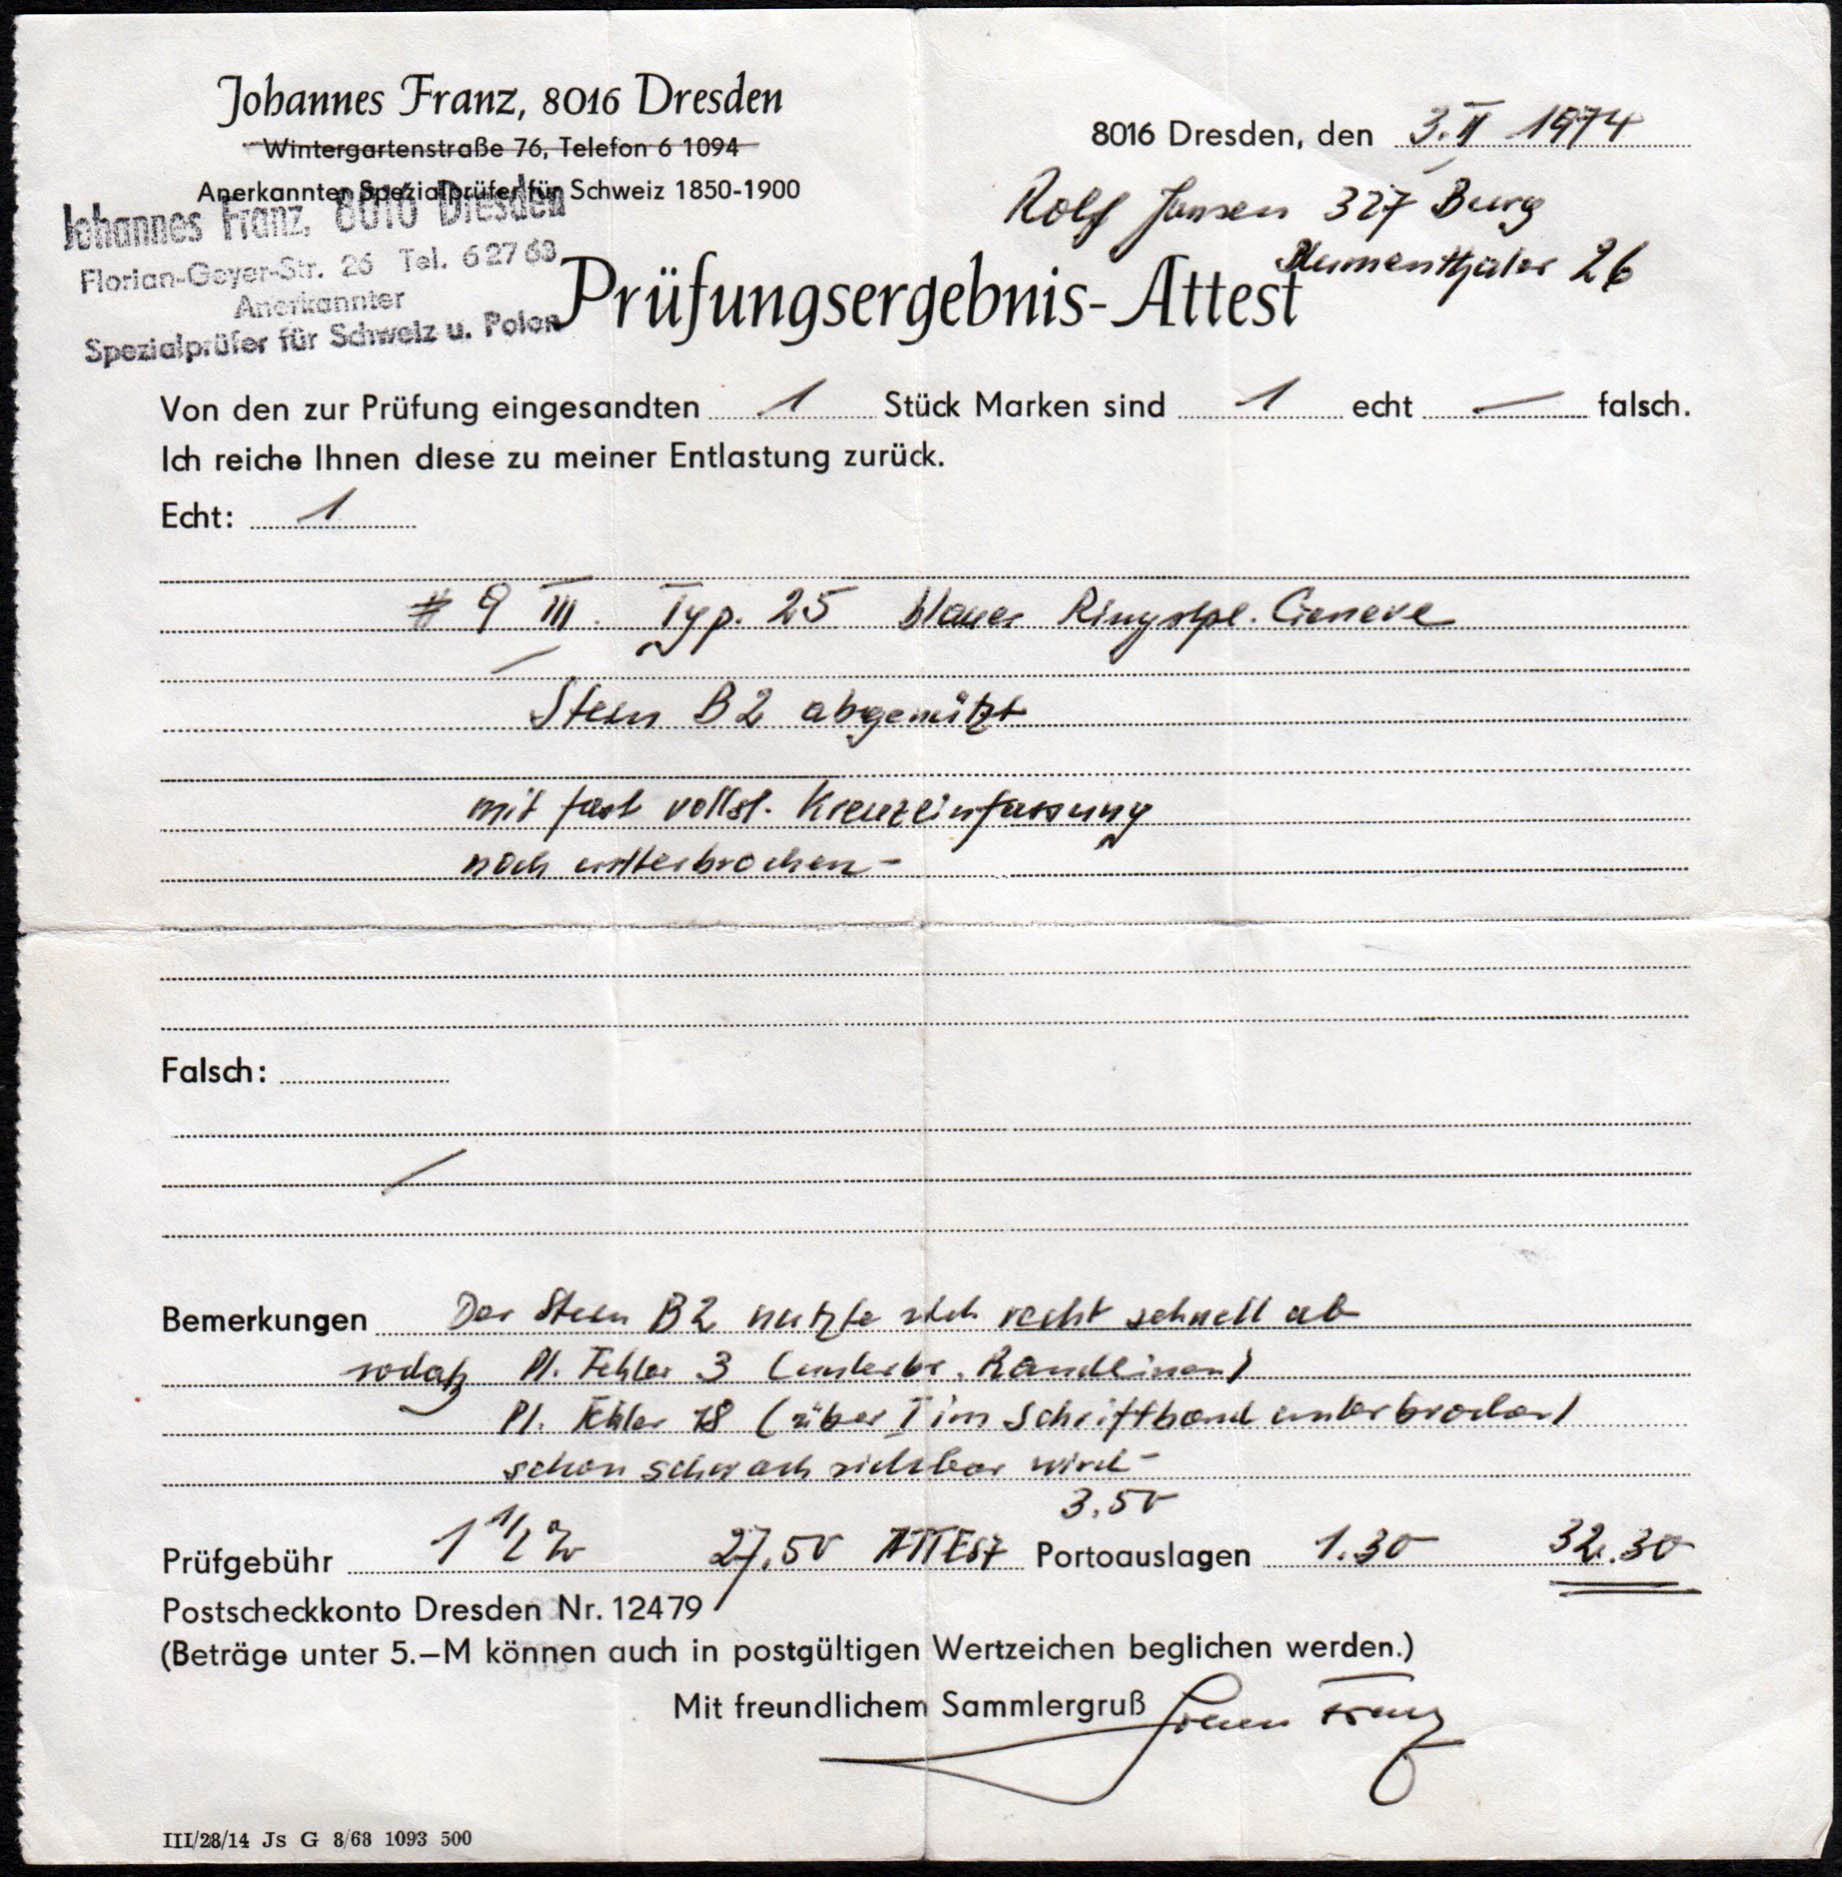 Johannes Franz, 8016 Dresden
Wintergartenstraße 76, Telefon 6 1094
Anerkannter Spezialprüfer für Schweiz 1850-1900
Johannes Franz, 8016 Dresden
Florian-Geyer-Str. 26 Tel. 6 27 63
Anerkannter
Spezialprüfer für Schweiz u. Polen
8016 Dresden, den 3. II 1974
Rolf Jansen 327 Burg
Blumenthaler 26
Prüfungsergebnis-Attest
Von den zur Prüfung eingesandten 1 Stück Marken sind 1 echt — falsch.
Ich reiche Ihnen diese zu meiner Entlastung zurück.
Echt: 1
# 9 III. Typ. 25 blauer Ringstpl. Geneve
Stein B2 abgenützt
mit fast vollst. Kreuzeinfassung
noch unterbrochen –
Falsch:
Bemerkungen Der Stein B2 nutzte sich recht schnell ab
sodaß Pl. Fehler 3 (unterbr. Randlinien)
Pl. Fehler 18 (über T im Schriftband unterbrochen)
schon schwach sichtbar wird –
3.50
Prüfgebühr 1 1/2 % 27.50 ATTEST Portoauslagen 1.30 32.30
Postscheckkonto Dresden Nr. 12479
(Beträge unter 5.—M können auch in postgültigen Wertzeichen beglichen werden.)
Mit freundlichem Sammlergruß Franz
III/28/14 Js G 8/68 1093 500